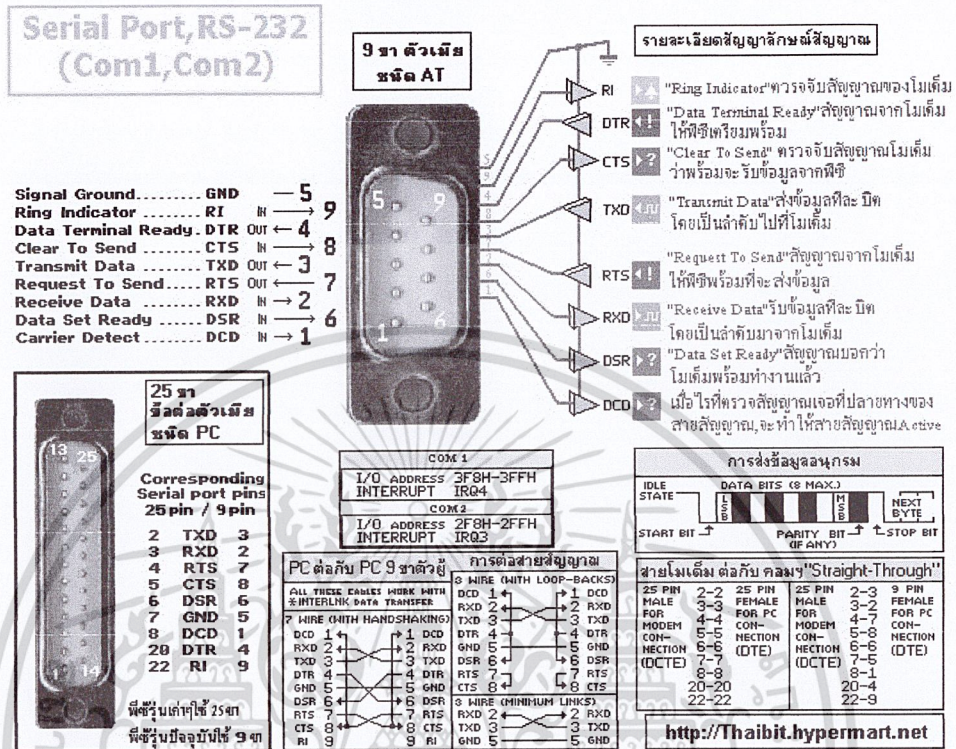 Serial Port,RS-232
(Com1,Com2)
9 ขา ตัวเมีย
ชนิด AT
รายละเอียดสัญญาลักษณ์สัญญาณ
Signal Ground........ GND — 5
Ring Indicator ........ RI IN → 9
Data Terminal Ready. DTR OUT ← 4
Clear To Send ........ CTS IN → 8
Transmit Data ........ TXD OUT ← 3
Request To Send..... RTS OUT ← 7
Receive Data ........ RXD IN → 2
Data Set Ready ...... DSR IN → 6
Carrier Detect........ DCD IN → 1
5 9
1 6
5
9
4
8
3
7
2
6
1
RI "Ring Indicator"ตวรจจับสัญญาณของโมเด็ม
DTR "Data Terminal Ready"สัญญาณจากโมเด็ม
ให้พีซีเตรียมพร้อม
CTS "Clear To Send" ตรวจจับสัญญาณโมเด็ม
ว่าพร้อมจะรับข้อมูลจากพีซี
TXD "Transmit Data"ส่งข้อมูลทีละ บิต
โดยเป็นลำดับไปที่โมเด็ม
RTS "Request To Send"สัญญาณจากโมเด็ม
ให้พีซีพร้อมที่จะ ส่งข้อมูล
RXD "Receive Data"รับข้อมูลทีละ บิต
โดยเป็นลำดับมาจากโมเด็ม
DSR "Data Set Ready"สัญญาณบอกว่า
โมเด็มพร้อมทำงานแล้ว
DCD เมื่อไรที่ตรวจสัญญาณเจอที่ปลายทางของ
สายสัญญาณ,จะ ทำให้สายสัญญาณActive
25 ขา
ข้อต่อตัวเมีย
ชนิด PC
13 25
1 14
Corresponding
Serial port pins
25 pin / 9 pin
2 TXD 3
3 RXD 2
4 RTS 7
5 CTS 8
6 DSR 6
7 GND 5
8 DCD 1
20 DTR 4
22 RI 9
พีซีรุ่นเก่าๆใช้ 25 ขา
พีซีรุ่นปัจจุบันใช้ 9 ขา
COM 1
I/O ADDRESS 3F8H-3FFH
INTERRUPT IRQ4
COM2
I/O ADDRESS 2F8H-2FFH
INTERRUPT IRQ3
PC ต่อกับ PC 9 ขาตัวผู้
ALL THESE CABLES WORK WITH
*INTERLNK DATA TRANSFER
7 WIRE (WITH HANDSHAKING)
DCD 1 1 DCD
RXD 2 2 RXD
TXD 3 3 TXD
DTR 4 4 DTR
GND 5 5 GND
DSR 6 6 DSR
RTS 7 7 RTS
CTS 8 8 CTS
RI 9 9 RI
การต่อสายสัญญาณ
3 WIRE (WITH LOOP-BACKS)
DCD 1 1 DCD
RXD 2 2 RXD
TXD 3 3 TXD
DTR 4 4 DTR
GND 5 5 GND
DSR 6 6 DSR
RTS 7 7 RTS
CTS 8 8 CTS
3 WIRE (MINIMUM LINKS)
RXD 2 2 RXD
TXD 3 3 TXD
GND 5 5 GND
การส่งข้อมูลอนุกรม
IDLE
STATE
DATA BITS (8 MAX.)
LSB
MSB
NEXT
BYTE
START BIT
PARITY BIT
(IF ANY)
STOP BIT
สายโมเด็ม ต่อกับ คอมฯ"Straight-Through"
25 PIN
MALE
FOR
MODEM
CON-
NECTION
(DCTE)
2-2
3-3
4-4
5-5
6-6
7-7
8-8
20-20
22-22
25 PIN
FEMALE
FOR PC
CON-
NECTION
(DTE)
25 PIN
MALE
FOR
MODEM
CON-
NECTION
(DCTE)
2-3
3-2
4-7
5-8
6-6
7-5
8-1
20-4
22-9
9 PIN
FEMALE
FOR PC
CON-
NECTION
(DTE)
http://Thaibit.hypermart.net